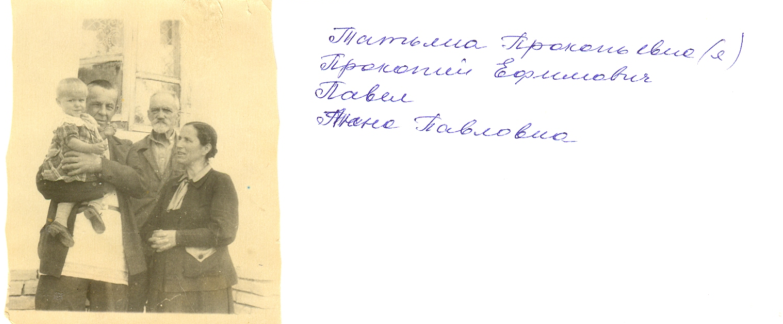 Татьяна Прокопьевна (я)
Прокопий Ефимович
Павел
Анна Павловна